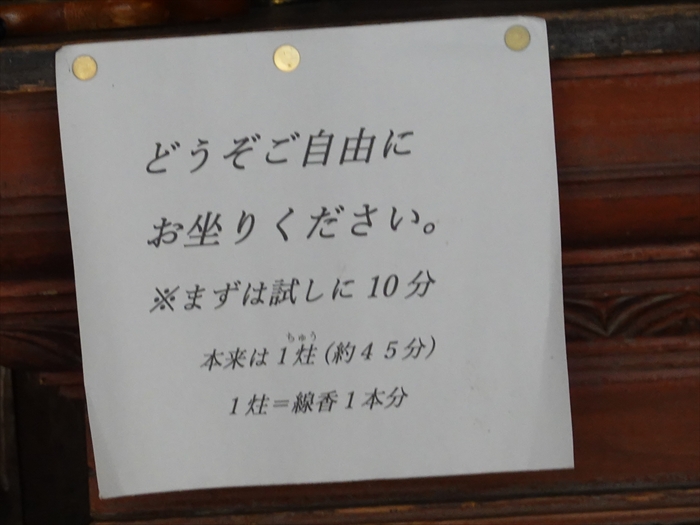 どうぞご自由に
お坐りください。
※まずは試しに10分
本来は1炷(約45分)
1炷＝線香1本分